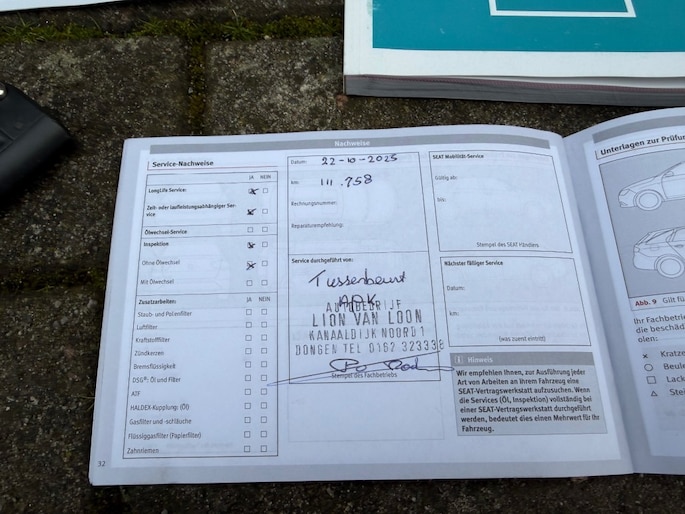 Nachweise
Service-Nachweise
JA NEIN
LongLife Service:
Zeit- oder laufleistungsabhängiger Ser-
vice
Ölwechsel-Service
Inspektion
Ohne Ölwechsel
Mit Ölwechsel
Zusatzarbeiten:
JA NEIN
Staub- und Pollenfilter
Luftfilter
Kraftstofffilter
Zündkerzen
Bremsflüssigkeit
DSG®: Öl und Filter
ATF
HALDEX-Kupplung: (Öl)
Gasfilter und -schläuche
Flüssiggasfilter (Papierfilter)
Zahnriemen
32
Datum: 22-10-2025
km: 111.758
Rechnungsnummer:
Reparaturempfehlung:
Service durchgeführt von:
Tussenbeurt
APK
AUTOBEDRIJF
LION VAN LOON
KANAALDIJK NOORD 1
DONGEN TEL 0162 323338
Stempel des Fachbetriebs
SEAT Mobilität-Service
Gültig ab:
bis:
Stempel des SEAT Händlers
Nächster fälliger Service
Datum:
km:
(was zuerst eintritt)
i Hinweis
Wir empfehlen Ihnen, zur Ausführung jeder
Art von Arbeiten an Ihrem Fahrzeug eine
SEAT-Vertragswerkstatt aufzusuchen. Wenn
die Services (Öl, Inspektion) vollständig bei
einer SEAT-Vertragswerkstatt durchgeführt
werden, bedeutet dies einen Mehrwert für Ihr
Fahrzeug.
Unterlagen zur Prüfun
Abb. 9 Gilt fü
Ihr Fachbetrie
die beschäd
ölen:
× Kratze
Beule
Lack
Stei